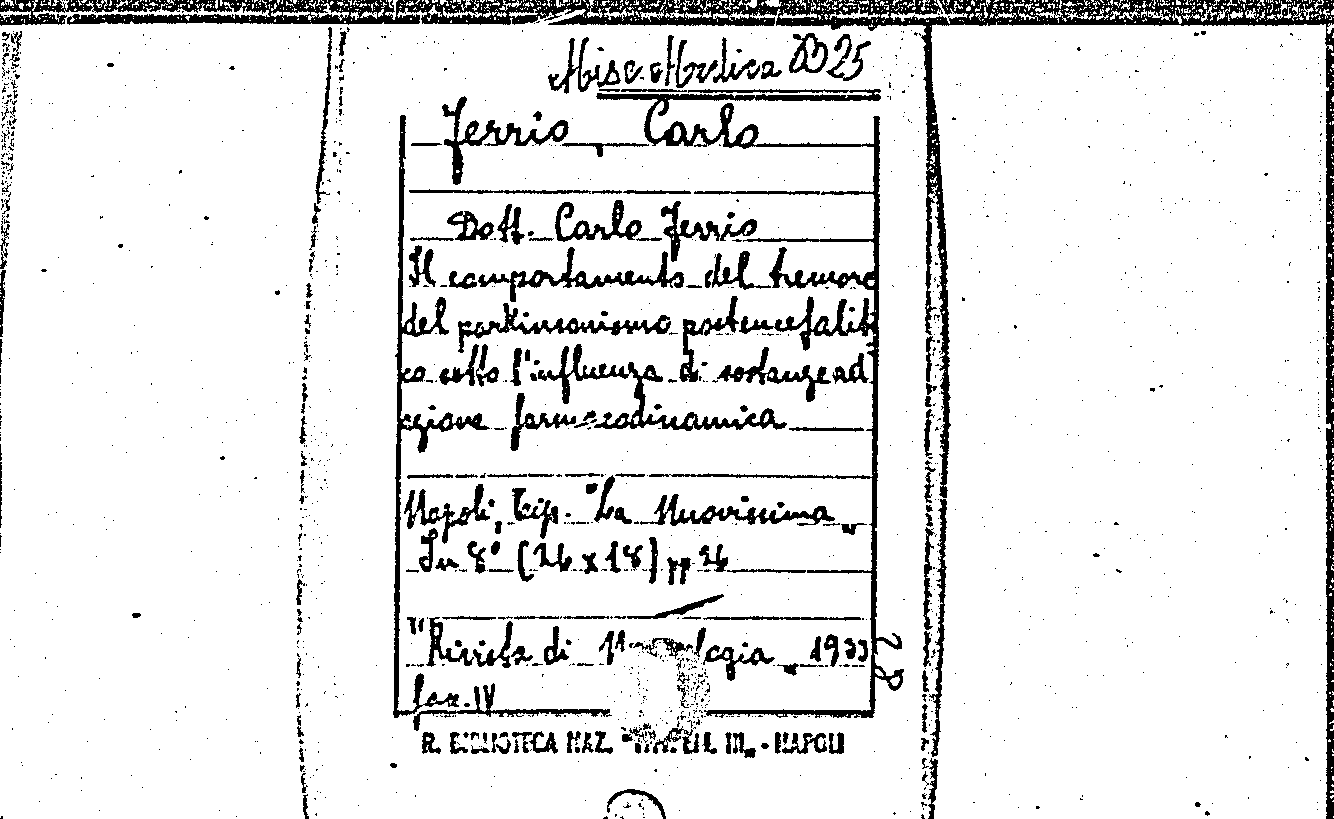 Misc. Medica B 25
Ferrio, Carlo
Dott. Carlo Ferrio
Il comportamento del tremore
del parkinsonismo postencefaliti
co sotto l'influenza di sostanze ad
azione farmacodinamica
Napoli, Tip. "La Nuovissima„
In 8° (26 x 18) pp 26
"Rivista di Neurologia„ 1933
fas. IV
28
R. BIBLIOTECA NAZ. "VITT. EM. III„ - NAPOLI